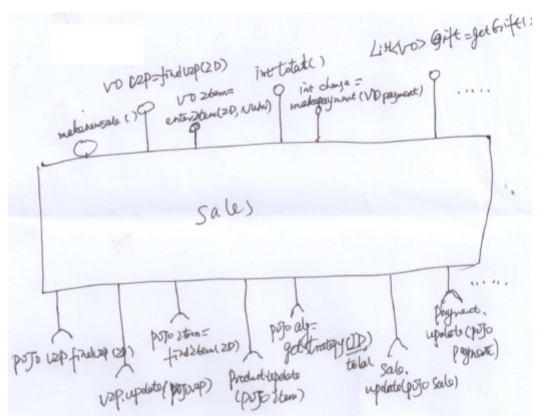 VO VIP=findVIP(ID)
makenewsale()
VO Item=
enterItem(ID, NUM)
int total()
int change =
makepayment(VO payment)
List<VO> Gift=getGift(
......
Sales
......
POJO VIP.findVIP(ID)
VIP.update(POJO VIP)
POJO Item=
findItem(ID)
Product.update
(POJO Item)
POJO alg=
getStrategy(ID)
total
Sale.
update(POJO Sale)
Payment.
update(POJO
Payment)